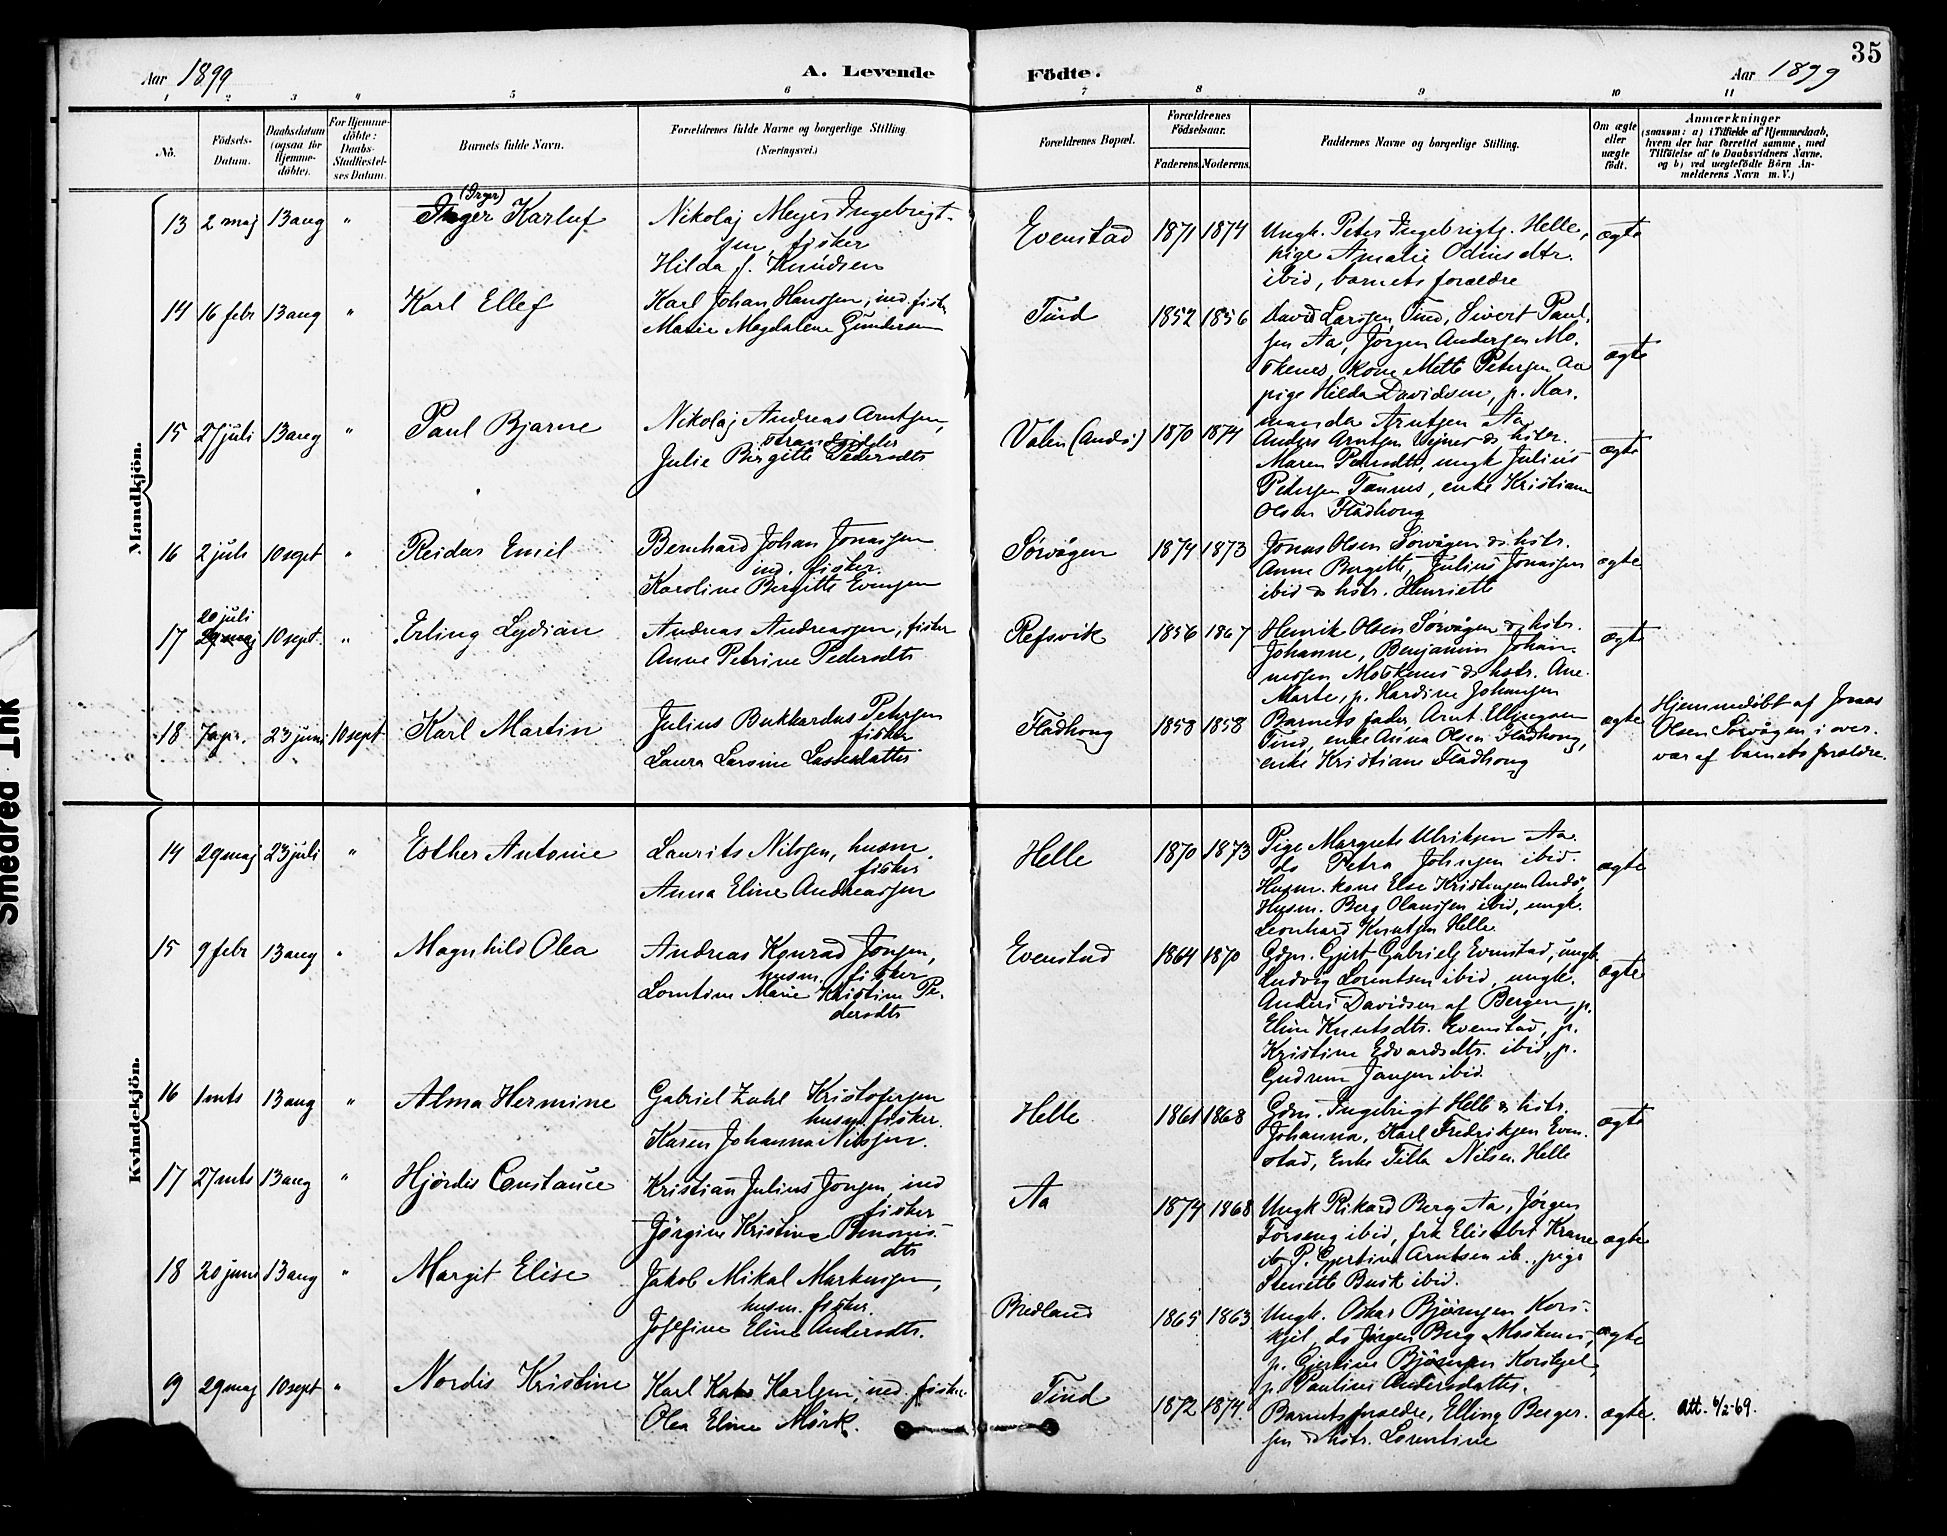 35
Aar 1899 A. Levende Födte. Aar 1899
1 2 3 4 5 6 7 8 9 10 11
No. Födsels-Datum. Daabsdatum (ogsaa for Hjemmedöbte). For Hjemmedöbte: Daabs-Stadfæstelses Datum. Barnets fulde Navn. Forældrenes fulde Navne og borgerlige Stilling (Næringsvei.) Forældrenes Bopæl. Forældrenes Födselsaar. Faderens. Moderens. Faddernes Navne og borgerlige Stilling. Om ægte eller uægte födt. Anmærkninger (saasom: a) i Tilfælde af Hjemmedaab, hvem der har forrettet samme, med Tilföielse af to Daabsvidners Navne, og b) ved uægtefödte Börn Anmelderens Navn m. V.)
Mandkjön.
13 2 maj 13 aug " (Inger) Karluf
Nikolaj Meyer Ingebrigt-
sen, fisker
Hilda f. Knudsen
Evenstad 1871 1874
Ungk. Peter Ingebrigts. Helle,
pige Amalie Odinsdtr.
ibid, barnets forældre
ægte
14 16 febr 13 aug " Karl Ellef
Karl Johan Hanssen, ind. fisker
Marie Magdalene Gundersen
Tind 1852 1856
David Larssen Tind, Sivert Paul-
sen Aa, Jørgen Andersen Mo-
skenes, kone Mette Petersen Aa
pige Hilda Davidsen, p. Kar-
Arntsen Aa
ægte
15 27 juli 13 aug " Paul Bjarne
Nikolaj Andreas Arntsen,
strandsidder
Julie Birgitte Pedersdtr
Valen (Andø) 1870 1874
Anders Arntsen & hstr.
Maren Pedersdtr, ungk Julius
Petersen, enke Kristiane
Olsen Fladhong
ægte
16 2 juli 10 sept " Reidar Emil
Bernhard Johan Jonassen
ind. fisker.
Karoline Bergitte Evensen
Sørvågen 1874 1873
Jonas Olsen Sørvågen & hstr.
Anne Bergitte, Julius Jonassen
ibid & hstr. Henriette
ægte
20 juli
17 29 maj 10 sept. " Erling Lydian
Andreas Andreassen, fisker
Anne Petrine Pedersdtr
Refsvik 1856 1867
Henrik Olsen Sørvågen & hstr.
Johanne, Benjamin Johan-
nessen Moskenes & hstr. Ane
Marte, p. Hardine Johansen
ægte
18 7 apr. 23 juni 10 sept Karl Martin
Julius Petersen
fisker
Laura Larsine Larsdatter
Fladhong 1858 1858
Barnets fader, Arnt Ellingsen
Tind, enke Anna Olsen Fladhong,
enke Kristiane Fladhong
ægte
Hjemmedøbt af Jonas
Olsen Sørvågen i over-
vær af barnets forældre.
Kvindekjön.
14 29 maj 23 juli " Esther Antonie
Laurits Nilssen, husm.
fisker
Anna Eline Andreassen
Helle 1870 1873
Pige Margrete Ulriksen Aa
do Petra Johnsen ibid.
Husm. kone Else Kristensen Andø,
Husm. Berg Olaussen ibid, ungk.
Leonhard Knutsen Helle
ægte
15 9 febr 13 aug " Magnhild Olea
Andreas Konrad Jonsen,
husm. fisker
Lorntine Marie Kristine Pe-
dersdtr
Evenstad 1864 1870
Gdm. Gjert Gabriels. Evenstad, ungk
Ludvig Lorentsen ibid, ungk.
Anders Davidsen af Bergen, p.
Eline Knutsdtr. Evenstad, p.
Kristine Edvardsdtr. ibid, p.
Gudrun Jansen ibid.
ægte
16 1 mts 13 aug " Alma Hermine
Gabriel Zahl Kristofersen
husm. fisker.
Karen Johanna Nilssen.
Helle 1861 1868
Gdm. Ingebrigt Helle & hstr.
Johanna, Karl Fredriksen Even-
stad, Enke Tilla Nilsen Helle
ægte
17 27 mts 13 aug " Hjördis Constance
Kristian Julius Jonsen, ind
fisker
Jörgine Kristine Benonis-
dtr
Aa 1874 1868
Ungk Rikard Berg Aa, Jørgen
ibid, frk Elisabet Krane
ib P. Gjertine Arntsen ib., pige
Busk ibid.
ægte
18 20 juni 13 aug " Margit Elise
Jakob Mikal Markussen,
husm. fisker.
Josefine Eline Andersdtr.
Bredland 1865 1863
Ungk. Oskar Bjørnsen Kors-
kjel, do Jørgen Berg Moskenes,
p. Gjertine Bjørnsen Korskjel,
p. Pauline Andersdatter.
ægte
9 29 maj 10 sept " Nordis Kristine
Karl Karlsen, ind. fisker
Olea Eline Mörk.
Tind 1872 1874
Barnets forældre, Elling Berger-
sen & hstr. Lorentine
ægte. Att. 6/2-69.
Smedred Ink